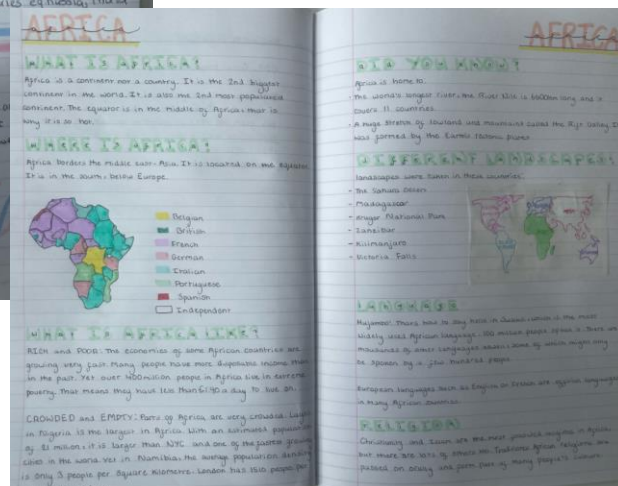 AFRICA
WHAT IS AFRICA?
Africa is a continent not a country. It is the 2nd biggest
continent in the world. It is also the 2nd most populated
continent. The equator is in the middle of Africa, that is
why it is so hot.
WHERE IS AFRICA?
Africa borders the middle east, Asia. It is located on the equator.
It is in the south, below Europe.
Belgian
British
French
German
Italian
Portuguese
Spanish
Independent
WHAT IS AFRICA LIKE?
RICH and POOR: The economies of some African countries are
growing very fast. Many people have more disposable income than
in the past. Yet over 400 million people in Africa live in extreme
poverty. That means they have less than £1.90 a day to live on.
CROWDED and EMPTY: Parts of Africa are very crowded. Lagos
in Nigeria is the largest in Africa. With an estimated population
of 21 million, it is larger than NYC and one of the fastest growing
cities in the world. Yet in Namibia, the average population density
is only 3 people per square kilometre. London has 1510 people per
AFRICA
DID YOU KNOW?
Africa is home to:
- The world's longest river, the River Nile is 6600km long and it
covers 11 countries.
- A huge stretch of lowland and mountains called the Rift Valley. It
was formed by the Earth's tectonic plates.
DIFFERENT LANDSCAPES:
landscapes were taken in these countries:
- The Sahara Desert
- Madagascar
- Kruger National Park
- Zanzibar
- Kilimanjaro
- Victoria Falls
LANGUAGE
Hujambo! That's how to say hello in Swahili which is the most
widely used African language. 100 million people speak it. There are
thousands of other languages some of which might only
be spoken by a few hundred people.
European languages such as English or French are official languages
in many African countries.
RELIGION
Christianity and Islam are the most practiced religions in Africa,
but there are lots of others too. Traditional African religions are
passed on orally and form part of many people's culture.